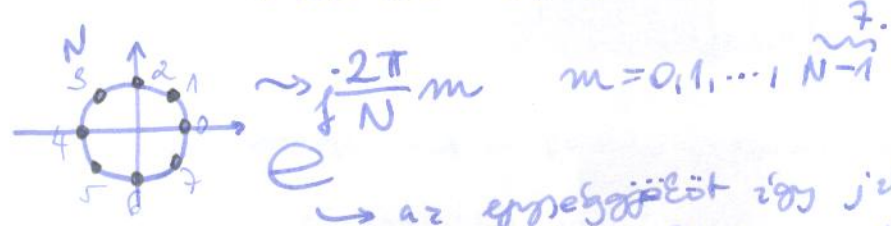 N
3 2 1
4 0
5 6 7
e^{j\frac{2π}{N}m} m=0,1,...,N-1
7.
→ az egységgyököt így